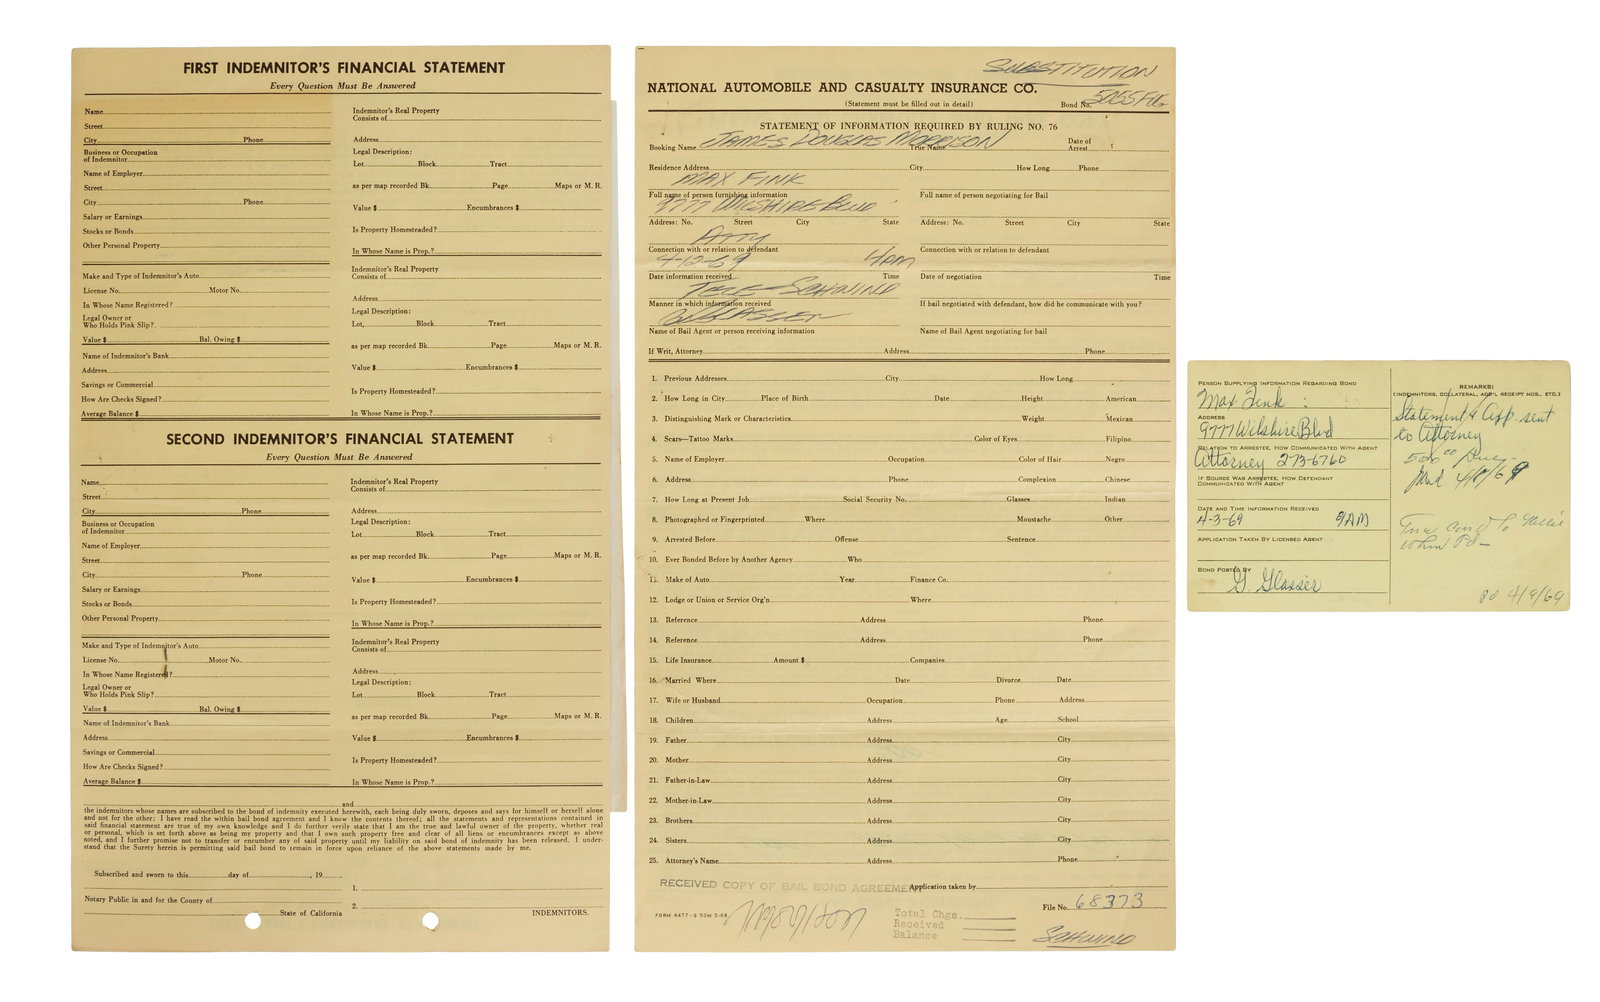 FIRST INDEMNITOR'S FINANCIAL STATEMENT
Every Question Must Be Answered
Name
Street
City Phone
Business or Occupation
of Indemnitor
Name of Employer
Street
City Phone
Salary or Earnings
Stocks or Bonds
Other Personal Property
Make and Type of Indemnitor's Auto
License No. Motor No.
In Whose Name Registered?
Legal Owner or
Who Holds Pink Slip?
Value $ Bal. Owing $
Name of Indemnitor's Bank
Address
Savings or Commercial
How Are Checks Signed?
Average Balance $
Indemnitor's Real Property
Consists of
Address
Legal Description:
Lot Block Tract
as per map recorded Bk. Page Maps or M. R.
Value $ Encumbrances $
Is Property Homesteaded?
In Whose Name is Prop.?
Indemnitor's Real Property
Consists of
Address
Legal Description:
Lot, Block Tract
as per map recorded Bk. Page Maps or M. R.
Value $ Encumbrances $
Is Property Homesteaded?
In Whose Name is Prop.?
SECOND INDEMNITOR'S FINANCIAL STATEMENT
Every Question Must Be Answered
Name
Street
City Phone
Business or Occupation
of Indemnitor
Name of Employer
Street
City Phone
Salary or Earnings
Stocks or Bonds
Other Personal Property
Make and Type of Indemnitor's Auto
License No. Motor No.
In Whose Name Registered?
Legal Owner or
Who Holds Pink Slip?
Value $ Bal. Owing $
Name of Indemnitor's Bank
Address
Savings or Commercial
How Are Checks Signed?
Average Balance $
Indemnitor's Real Property
Consists of
Address
Legal Description:
Lot Block Tract
as per map recorded Bk. Page Maps or M. R.
Value $ Encumbrances $
Is Property Homesteaded?
In Whose Name is Prop.?
Indemnitor's Real Property
Consists of
Address
Legal Description:
Lot Block Tract
as per map recorded Bk. Page Maps or M. R.
Value $ Encumbrances $
Is Property Homesteaded?
In Whose Name is Prop.?
and
the indemnitors whose names are subscribed to the bond of indemnity executed herewith, each being duly sworn, deposes and says for himself or herself alone
and not for the other: I have read the within bail bond agreement and I know the contents thereof; all the statements and representations contained in
said financial statement are true of my own knowledge and I do further verily state that I am the true and lawful owner of the property, whether real
or personal, which is set forth above as being my property and that I own such property free and clear of all liens or encumbrances except as above
noted, and I further promise not to transfer or encumber any of said property until my liability on said bond of indemnity has been released. I under-
stand that the Surety herein is permitting said bail bond to remain in force upon reliance of the above statements made by me.
Subscribed and sworn to this day of , 19
1.
Notary Public in and for the County of
2.
State of California INDEMNITORS.
SUBSTITUTION
NATIONAL AUTOMOBILE AND CASUALTY INSURANCE CO.
(Statement must be filled out in detail) Bond No.
STATEMENT OF INFORMATION REQUIRED BY RULING NO. 76
Booking Name JAMES DOUGLAS MORRISON True Name Date of
Arrest
Residence Address City How Long Phone
MAX FINK
Full name of person furnishing information Full name of person negotiating for Bail
9777 WILSHIRE BLVD
Address: No. Street City State Address: No. Street City State
ATTY
Connection with or relation to defendant Connection with or relation to defendant
4-12-69 4AM
Date information received Time Date of negotiation Time
TELE - SCHWIND
Manner in which information received If bail negotiated with defendant, how did he communicate with you?
Name of Bail Agent or person receiving information Name of Bail Agent negotiating for bail
If Writ, Attorney Address Phone
1. Previous Addresses City How Long
2. How Long in City Place of Birth Date Height American
3. Distinguishing Mark or Characteristics Weight Mexican
4. Scars—Tattoo Marks Color of Eyes Filipino
5. Name of Employer Occupation Color of Hair Negro
6. Address Phone Complexion Chinese
7. How Long at Present Job Social Security No. Glasses Indian
8. Photographed or Fingerprinted Where Moustache Other
9. Arrested Before Offense Sentence
10. Ever Bonded Before by Another Agency Who
11. Make of Auto Year Finance Co.
12. Lodge or Union or Service Org'n Where
13. Reference Address Phone
14. Reference Address Phone
15. Life Insurance Amount $ Companies
16. Married Where Date Divorce Date
17. Wife or Husband Occupation Phone Address
18. Children Address Age School
19. Father Address City
20. Mother Address City
21. Father-in-Law Address City
22. Mother-in-Law Address City
23. Brothers Address City
24. Sisters Address City
25. Attorney's Name Address Phone
RECEIVED COPY OF BAIL BOND AGREEMENT Application taken by
File No. 68373
FORM 4477 - 50M 5-68
Total Chgs.
Received
Balance
SCHWIND
PERSON SUPPLYING INFORMATION REGARDING BOND
Max Fink
ADDRESS
9777 Wilshire Blvd
RELATION TO ARRESTEE, HOW COMMUNICATED WITH AGENT
Attorney 273-6760
IF SOURCE WAS ARRESTEE, HOW DEFENDANT
COMMUNICATED WITH AGENT
DATE AND TIME INFORMATION RECEIVED
4-3-69 9AM
APPLICATION TAKEN BY LICENSED AGENT
BOND POSTED BY
G. Glasser
REMARKS:
(INDEMNITORS, COLLATERAL, ADD'L RECEIPT NOS., ETC.)
Statement & App. sent
to Attorney
500 00
4/8/69
to
Pd 4/9/69